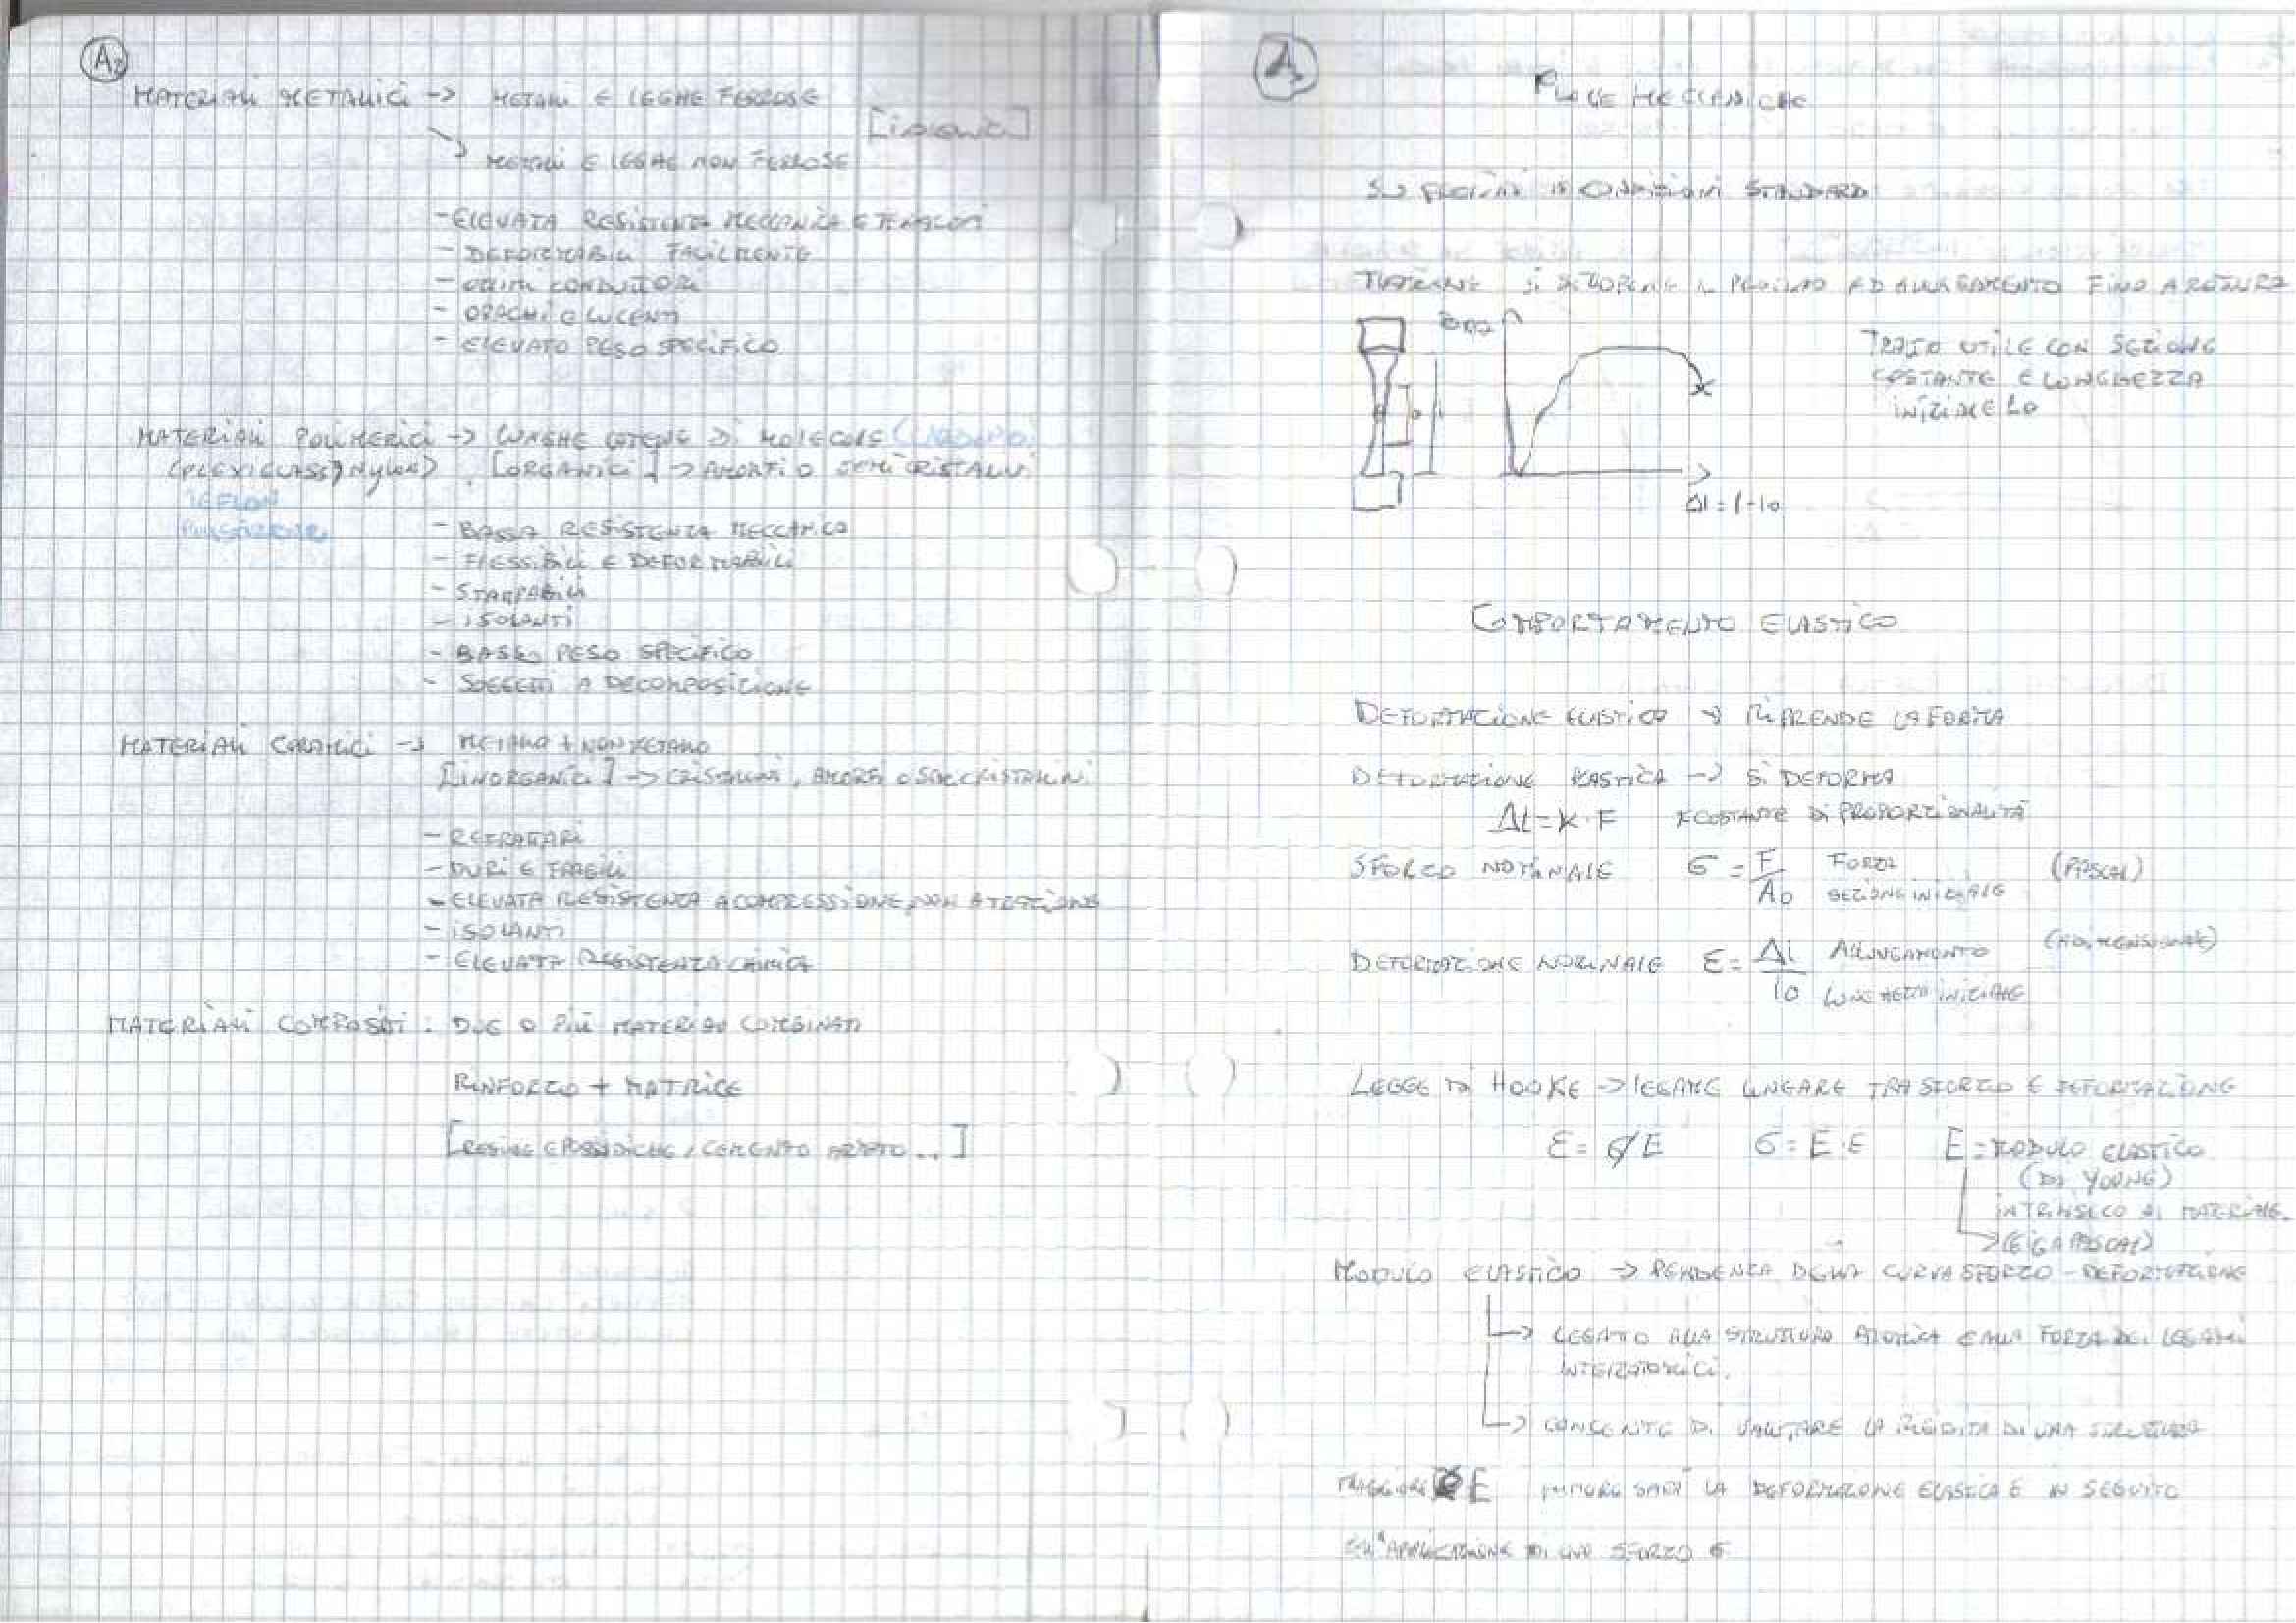 A2
MATERIALI METALLICI -> METALLI E LEGHE FERROSE
METALLI E LEGHE NON FERROSE
- ELEVATA RESISTENZA MECCANICA E TENACITÀ
- DEFORMABILI FACILMENTE
- OTTIMI CONDUTTORI
- OPACHI O LUCENTI
- ELEVATO PESO SPECIFICO
MATERIALI POLIMERICI -> LUNGHE CATENE DI MOLECOLE
(PLEXIGLASS, NYLON) [ORGANICI] -> AMORFI O SEMICRISTALLINI
TEFLON
- BASSA RESISTENZA MECCANICA
- FLESSIBILI E DEFORMABILI
- STAMPABILI
- ISOLANTI
- BASSO PESO SPECIFICO
- SOGGETTI A DECOMPOSIZIONE
MATERIALI CERAMICI -> METALLO + NON METALLO
[INORGANICI] -> CRISTALLINI, AMORFI O SEMICRISTALLINI
- REFRATTARI
- DURI E FRAGILI
- ELEVATA RESISTENZA A COMPRESSIONE, NON A TRAZIONE
- ISOLANTI
- ELEVATA RESISTENZA CHIMICA
MATERIALI COMPOSITI : DUE O PIÙ MATERIALI COMBINATI
RINFORZO + MATRICE
[RESINE EPOSSIDICHE, CEMENTO ARMATO ..]
A
PROVE MECCANICHE
SU PROVINI IN CONDIZIONI STANDARD
TRAZIONE SI SOTTOPONE IL PROVINO AD ALLUNGAMENTO FINO A ROTTURA
FORZA
TRATTO UTILE CON SEZIONE
COSTANTE E LUNGHEZZA
INIZIALE L0
Δl = l - l0
COMPORTAMENTO ELASTICO
DEFORMAZIONE ELASTICA -> RIPRENDE LA FORMA
DEFORMAZIONE PLASTICA -> SI DEFORMA
Δl = K · F K COSTANTE DI PROPORZIONALITÀ
SFORZO NOMINALE σ = F/A0 FORZA (PASCAL)
SEZIONE INIZIALE
DEFORMAZIONE NOMINALE ε = Δl/l0 ALLUNGAMENTO (ADIMENSIONALE)
LUNGHEZZA INIZIALE
LEGGE DI HOOKE -> LEGAME LINEARE TRA SFORZO E DEFORMAZIONE
ε = σ/E σ = E · ε E = MODULO ELASTICO
(DI YOUNG)
INTRINSECO AL MATERIALE.
-> (GIGAPASCAL)
MODULO ELASTICO -> PENDENZA DELLA CURVA SFORZO - DEFORMAZIONE
-> LEGATO ALLA STRUTTURA ATOMICA E ALLA FORZA DEI LEGAMI
INTERATOMICI.
-> CONSENTE DI VALUTARE LA RIGIDITÀ DI UNA STRUTTURA
MAGGIORE E MINORE SARÀ LA DEFORMAZIONE ELASTICA ε IN SEGUITO
ALL'APPLICAZIONE DI UNO SFORZO σ